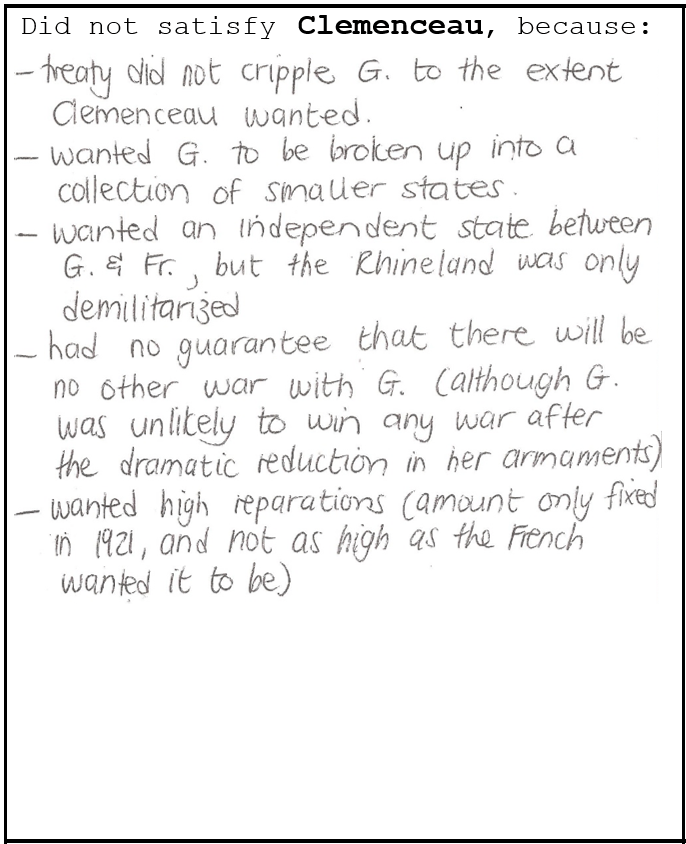 Did not satisfy Clemenceau, because:
- treaty did not cripple G. to the extent
Clemenceau wanted.
- wanted G. to be broken up into a
collection of smaller states.
- wanted an independent state between
G. & Fr., but the Rhineland was only
demilitarized
- had no guarantee that there will be
no other war with G. (although G.
was unlikely to win any war after
the dramatic reduction in her armaments)
- wanted high reparations (amount only fixed
in 1921, and not as high as the French
wanted it to be)